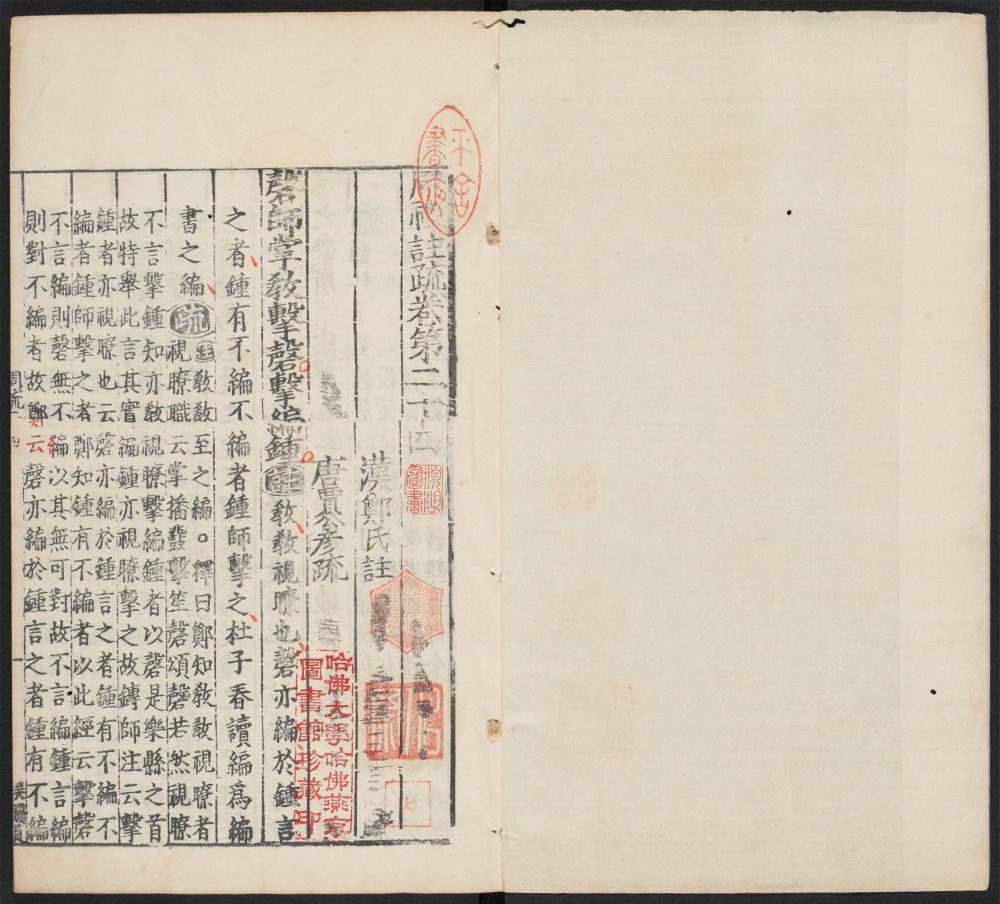 周禮註疏卷第二十四
漢鄭氏註
唐賈公彥疏
磬師掌教擊磬擊編鍾註教教視瞭也磬亦編於鍾言
之者鍾有不編不編者鍾師擊之杜子春讀編爲編
書之編疏註教教至之編○釋曰鄭知教教視瞭者
視瞭職云掌播鼗擊笙磬頌磬若然視瞭
不言擊鍾知亦教視瞭擊編鍾者以磬是樂縣之首
故特舉此言其實編鍾亦視瞭擊之故鎛師注云擊
鍾者亦視瞭也云磬亦編於鍾言之者鍾有不編不
編者鍾師擊之者鄭知鍾有不編者以此經云擊磬
不言編則磬無不編以其無可對故不言編鍾言編
則對不編者故鄭云磬亦編於鍾言之者鍾有不編
周疏
哈佛大學哈佛燕京
圖書館珍藏印